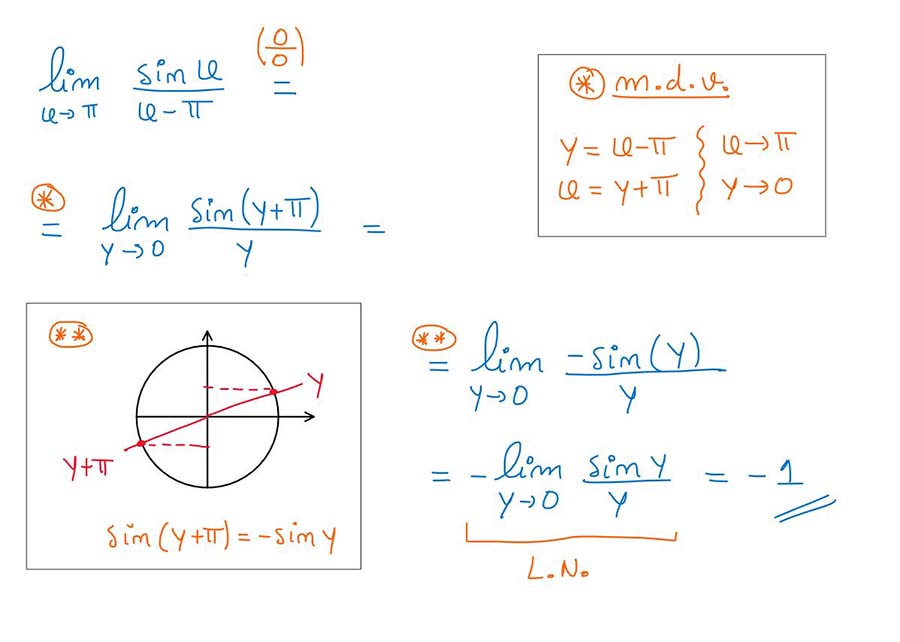 lim u→π sin u / u-π (0/0) =
(*) m.d.v.
y = u-π } u→π
u = y+π } y→0
(*) = lim y→0 sin(y+π) / y =
(**)
y
y+π
sin(y+π) = -sin y
(**) = lim y→0 -sin(y) / y
= - lim y→0 sin y / y = -1
L.N.